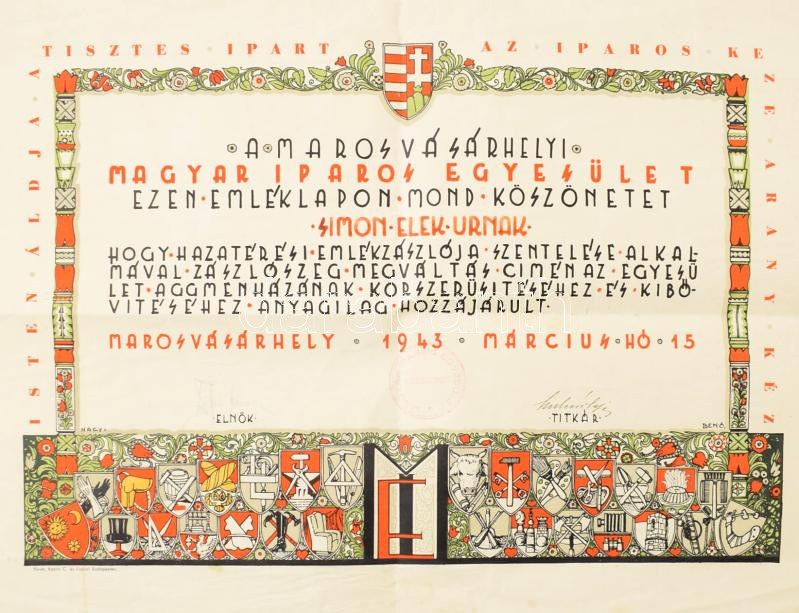 ISTEN ÁLDJA A
TISZTES IPART AZ IPAROS KE
ZE ARANY KÉZ
A MAROSVÁSÁRHELYI
MAGYAR IPAROS EGYESÜLET
EZEN·EMLÉKLAPON·MOND·KÖSZÖNETET
·SIMON·ELEK·URNAK·
HOGY·HAZATÉRÉSI·EMLÉKZÁSZLÓJA·SZENTELÉSE·ALKAL-
MÁVAL·ZÁSZLÓSZEG·MEGVÁLTÁS·CIMÉN·AZ·EGYESÜ
LET·AGGMENHÁZÁNAK·KORSZERÜSITÉSÉHEZ·ÉS·KIBŐ-
VITÉSÉHEZ·ANYAGILAG·HOZZÁJÁRULT·
MAROSVÁSÁRHELY · 1943 · MÁRCIUS·HÓ·15
·ELNÖK·
·TITKÁR·
NAGY·
BENŐ·
MIE